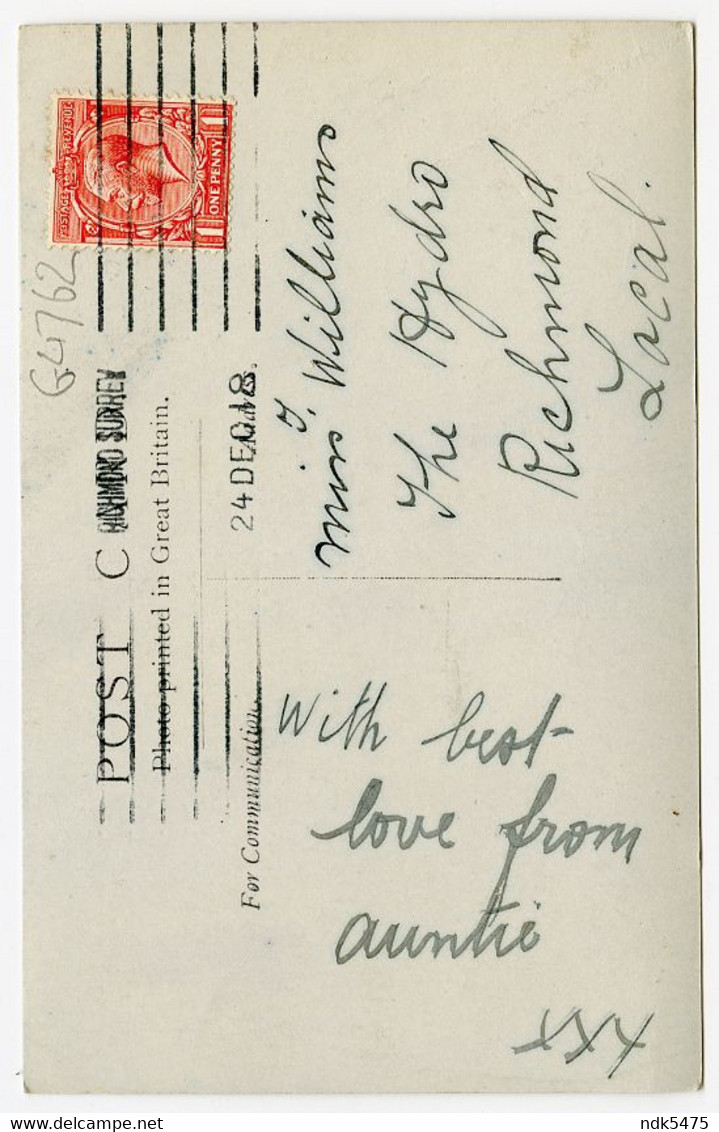 POST C
Photo printed in Great Britain.
For Communication.
RICHMOND SURREY
24 DEC 18
POSTAGE REVENUE
1 ONE PENNY 1
G4762
With best
love from
auntie
xxx
Miss J. Williams
The Hydro
Richmond
Local.
ndk5475